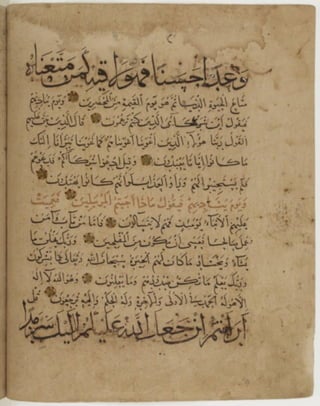 وعدا حسنا فهو لاقيه كمن متعناه
متاع الحيوة الدنيا ثم هو يوم القيمة من المحضرين ويوم يناديهم
فيقول اين شركائى الذين كنتم تزعمون قال الذين حق عليهم
القول ربنا هؤلاء الذين اغوينا اغويناهم كما غوينا تبرأنا اليك
ما كانوا ايانا يعبدون وقيل ادعوا شركاءكم فدعوهم
فلم يستجيبوا لهم ورأوا العذاب لو انهم كانوا يهتدون
ويوم يناديهم فيقول ماذا اجبتم المرسلين فعميت
عليهم الانباء يومئذ فهم لا يتساءلون فاما من تاب وامن
وعمل صالحا فعسى ان يكون من المفلحين وربك يخلق ما
يشاء ويختار ما كان لهم الخيرة سبحان الله وتعالى عما يشركون
وربك يعلم ما تكن صدورهم وما يعلنون وهو الله لا اله
الا هو له الحمد فى الاولى والاخرة وله الحكم واليه ترجعون قل
ارايتم ان جعل الله عليكم اليل سرمدا